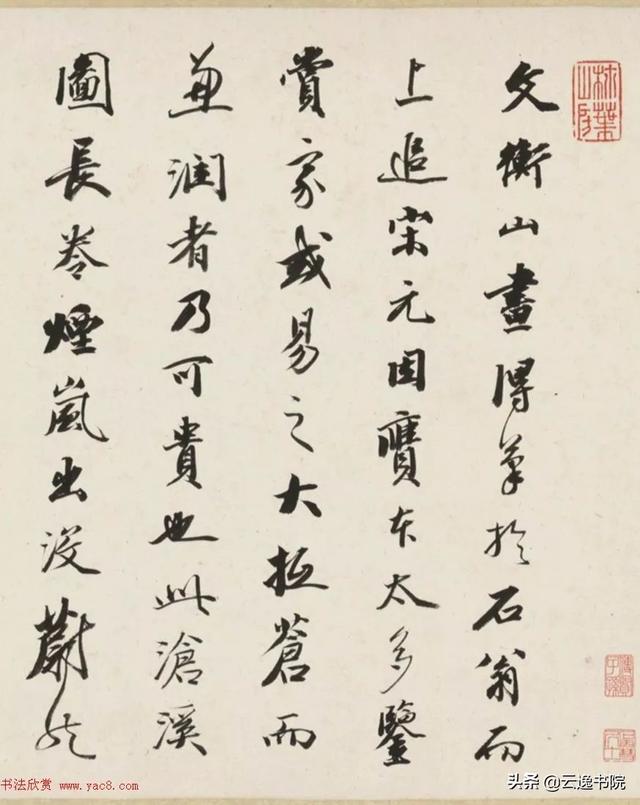 文衡山畫得筆於石翁而
上追宋元因贋本太多鑒
賞家或易之大抵蒼而
兼潤者乃可貴也此滄溪
圖長卷煙嵐出沒蔚然
书法欣赏 www.yac8.com
头条 @云逸书院